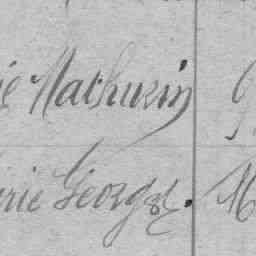 é Mathurin
rie Georges.